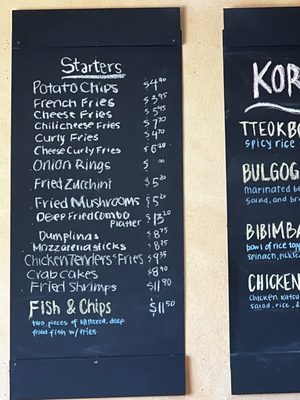 Starters
Potato Chips $4.90
French Fries $3.95
Cheese Fries $5.45
Chilicheese Fries
Curly Fries
Cheese Curly Fries
Onion Rings $
Fried Zucchini $5.20
Fried Mushrooms $5.20
Deep Fried Combo Platter $13.20
Dumplings $8.75
Mozzarella sticks $8.75
Chicken Tenders & Fries $9.35
Crab Cakes $8.90
Fried Shrimps $11.90
Fish & Chips $11.50
two pieces of battered, deep
fried fish w/ fries
KOR
TTEOKBO
spicy rice
BULGOG
marinated be
salad, and br
BIBIMBA
bowl of rice topp
spinach, pickle
CHICKEN
chicken katsu
salad, rice, &